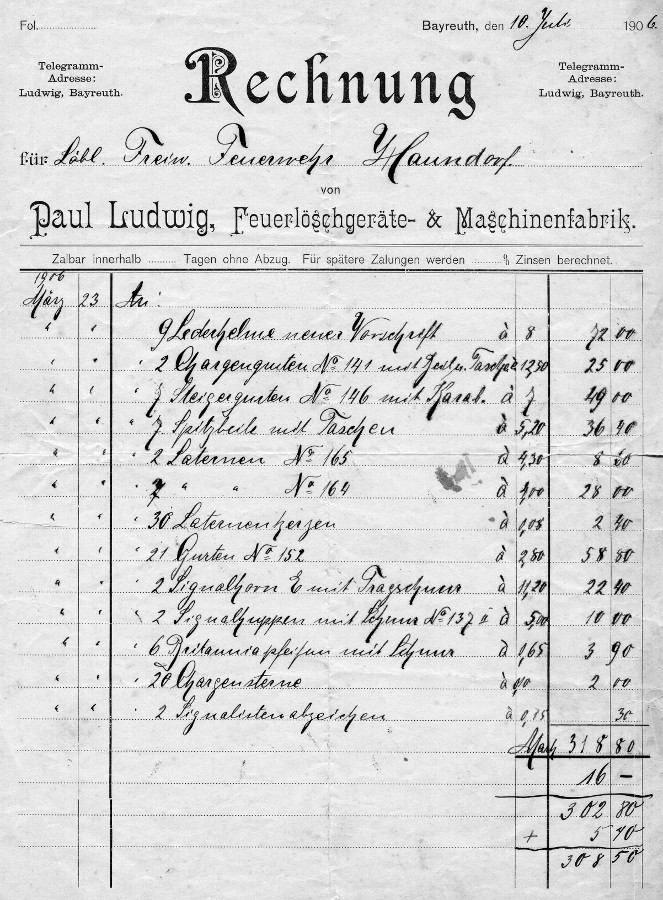 Fol.
Bayreuth, den 10. Juli 1906.
Telegramm-Adresse: Ludwig, Bayreuth.
Rechnung
Telegramm-Adresse: Ludwig, Bayreuth.
für Löbl. Freiw. Feuerwehr Haundorf
von
Paul Ludwig, Feuerlöschgeräte- & Maschinenfabrik.
Zalbar innerhalb Tagen ohne Abzug. Für spätere Zalungen werden % Zinsen berechnet.
1906
März 23 An:
" " 9 Lederhelme neuer Vorschrift à 8 72 00
" " 2 Chargengurten No 141 mit Tasche à 12,50 25 00
" " 7 Steigergurten No 146 mit Karab. à 7 49 00
" " 7 Spitzbeile mit Taschen à 5,20 36 40
" " 2 Laternen No 165 à 4,30 8 60
" " 7 " " No 164 à 4,00 28 00
" " 30 Laternenkerzen à 0,08 2 40
" " 21 Gurten No 152 à 2,80 58 80
" " 2 Signalhorn E mit Tragschnur à 11,20 22 40
" " 2 Signalhuppen mit Schnur No 137 II à 5,00 10 00
" " 6 Britanniapfeifen mit Schnur à 0,65 3 90
" " 20 Chargensterne à 0,10 2 00
" " 2 Signalistenabzeichen à 0,15 30
Mark 318 80
16 –
302 80
+ 5 70
308 50